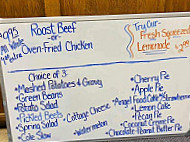 $9.95
All White
Meat
Roast Beef
or
Oven-Fried Chicken
Try Our-
Fresh Squeezed
Lemonade
Choice of 3:
• Mashed Potatoes & Gravy
• Green Beans
• Potato Salad
• Pickled Beets
• Spring Salad
• Cole Slaw
• Cottage Cheese
• Watermelon
• Cherry Pie
• Apple Pie
• Angel Food Cake w/ Strawberries
• Lemon Cake
• Pecan Pie
• Coconut Cream Pie
• Chocolate-Peanut Butter Pie